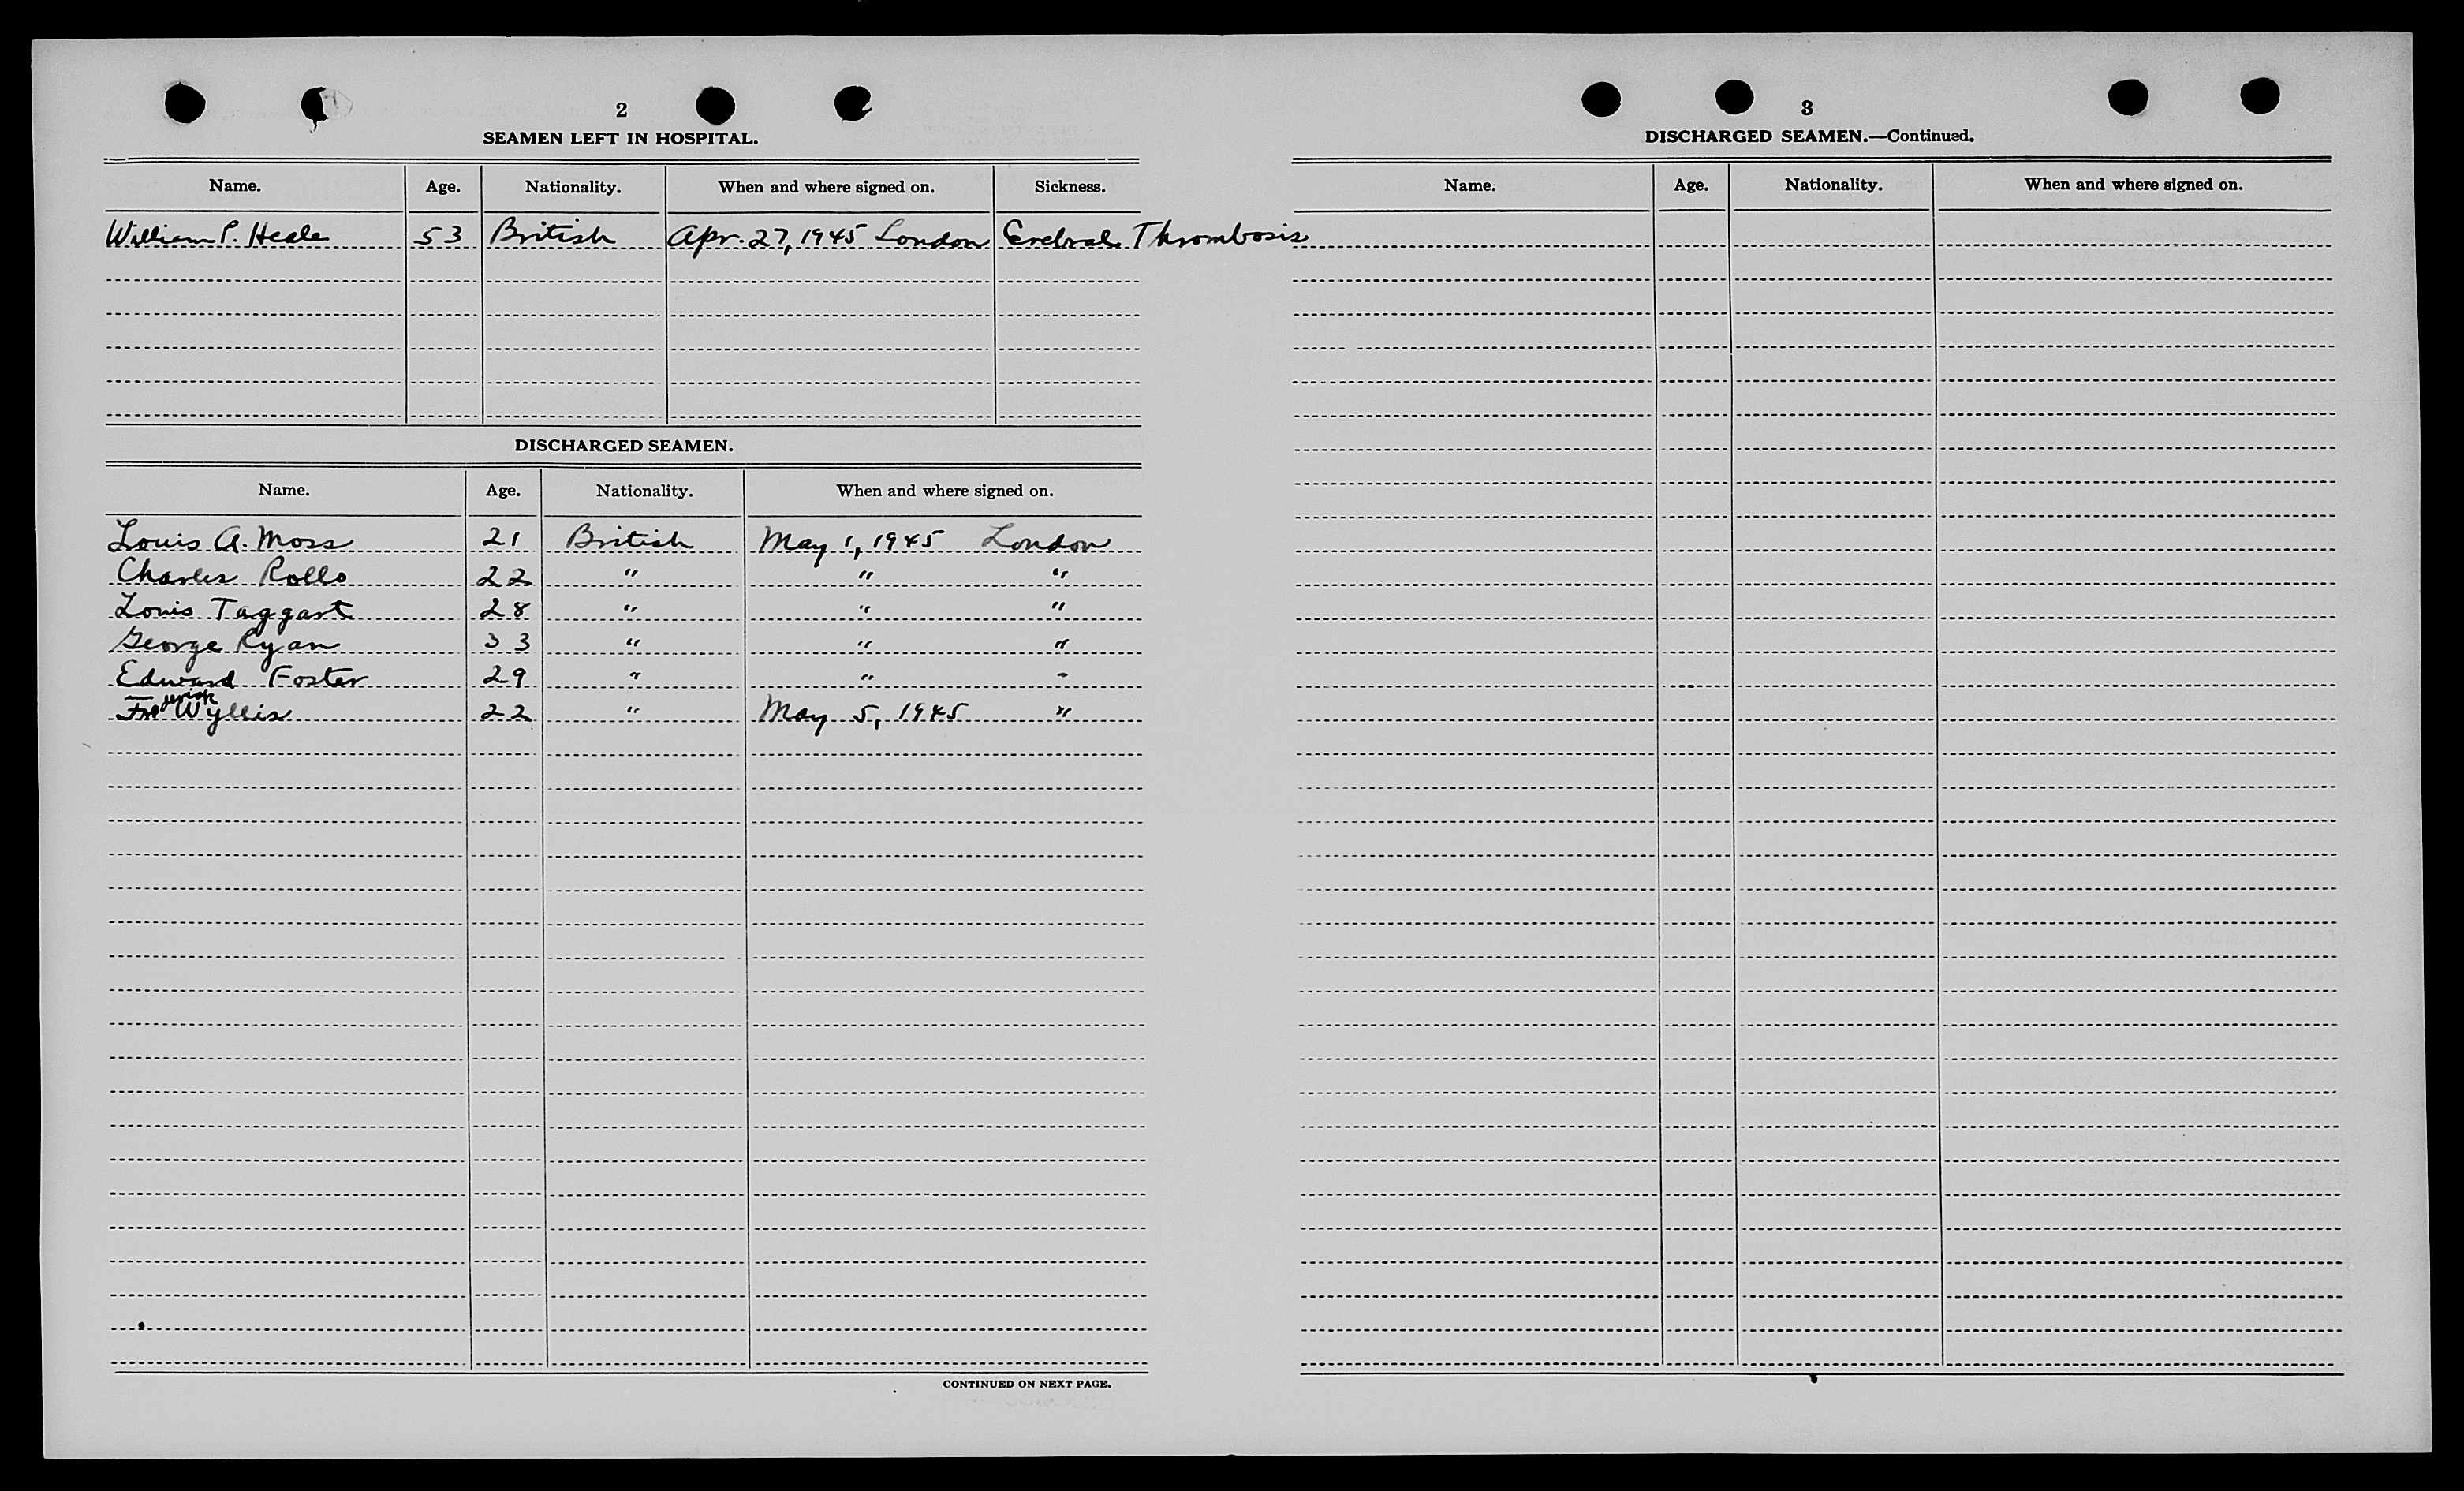 2
SEAMEN LEFT IN HOSPITAL.
Name. Age. Nationality. When and where signed on. Sickness.
William P. Heale 53 British Apr. 27, 1945 London Cerebral Thrombosis
DISCHARGED SEAMEN.
Name. Age. Nationality. When and where signed on.
Louis A. Moss 21 British May 1, 1945 London
Charles Rollo 22 " " "
Louis Taggart 28 " " "
George Ryan 33 " " "
Edward Foster 29 " " "
Frederick Wyllis 22 " May 5, 1945 "
CONTINUED ON NEXT PAGE.
3
DISCHARGED SEAMEN.—Continued.
Name. Age. Nationality. When and where signed on.